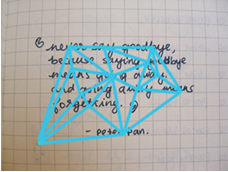 never say goodbye,
because saying goodbye
means going away,
and going away means
forgetting.
- peter pan.